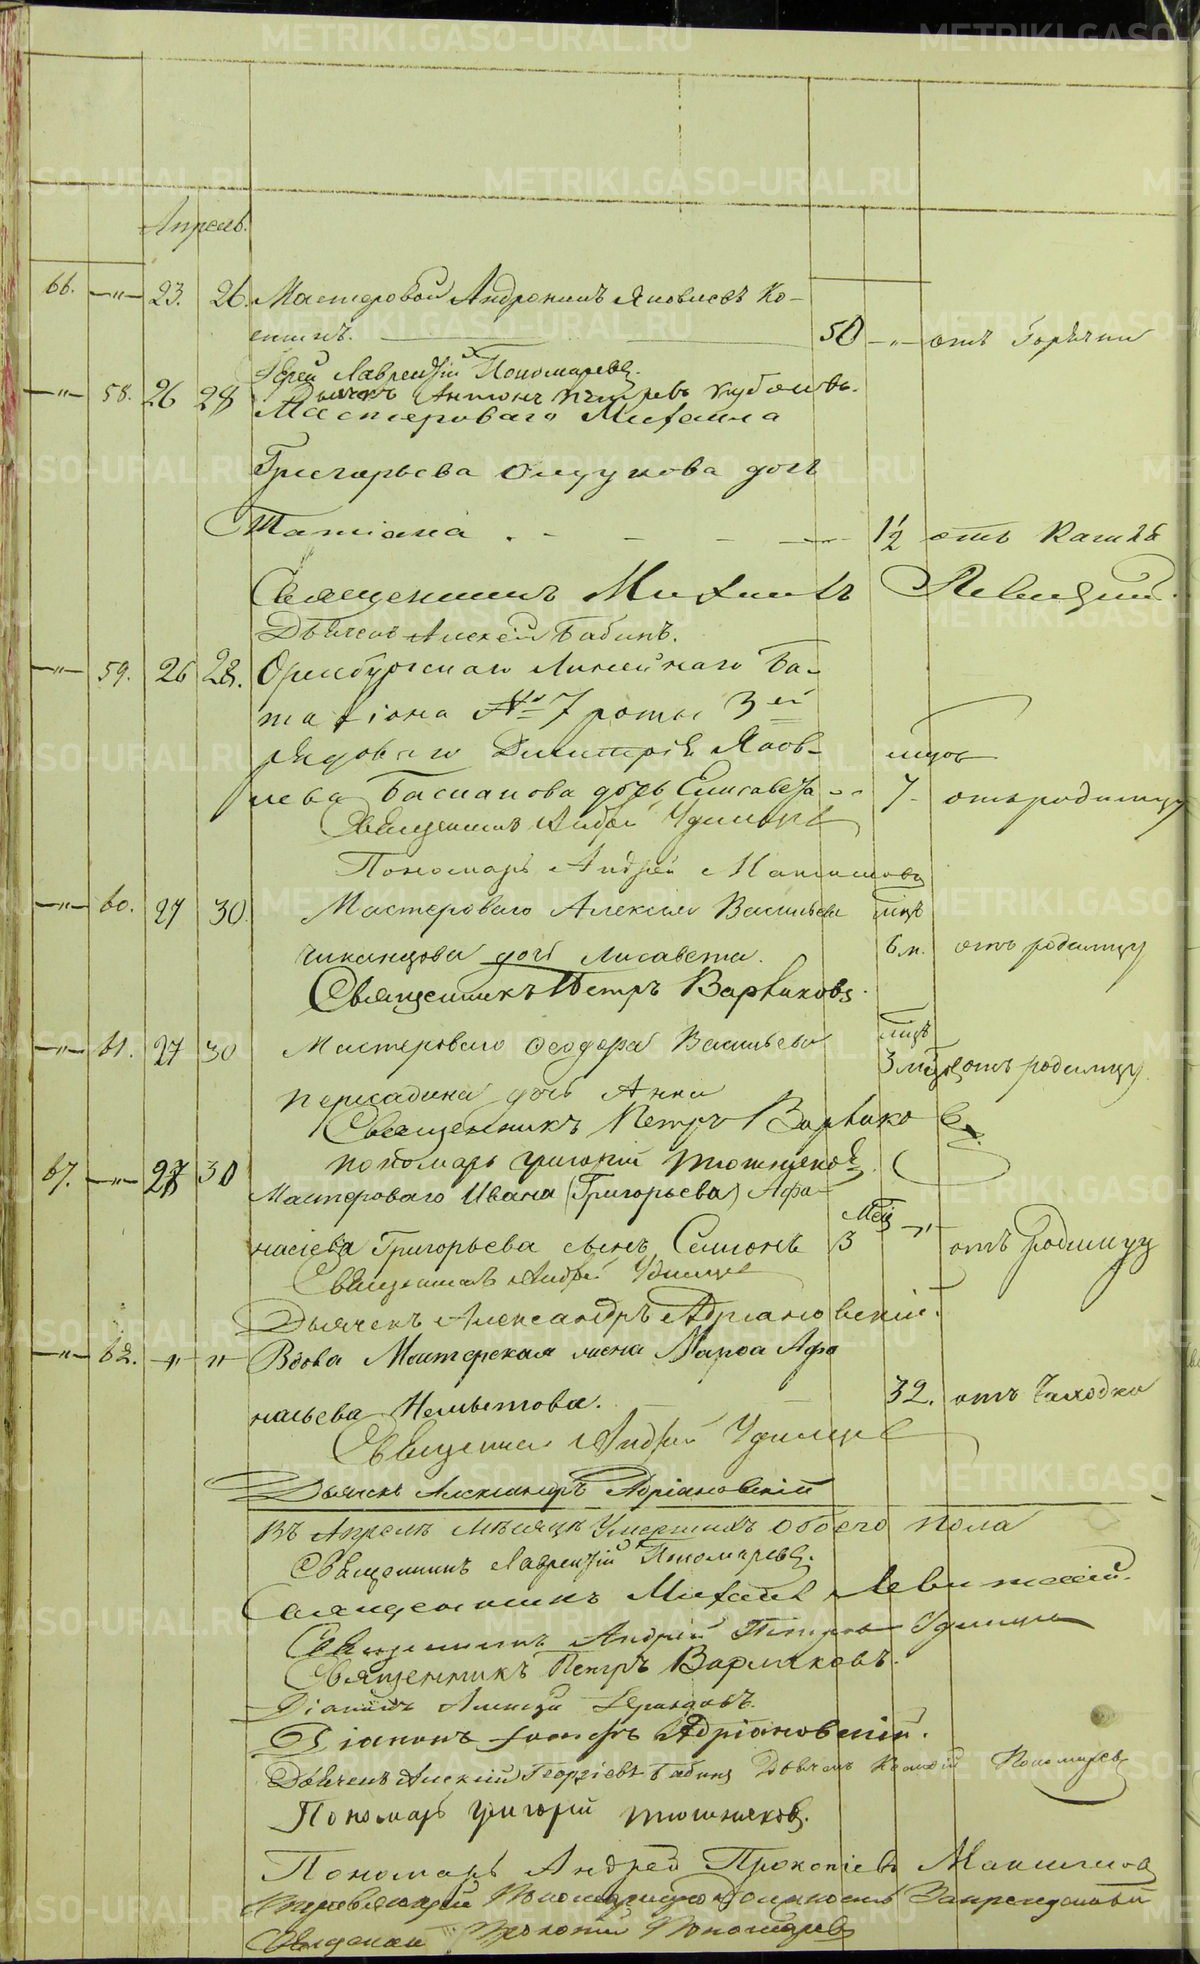 Апрель.
66. —"— 23. 26. Мастеровой Андроникъ Яковлевъ Ко-
50 —"— отъ Горячки
Іерей Лаврентій Пономаревъ.
—"— 58. 26 28 Дьячекъ Антонъ
Мастероваго Михаила
Григорьева дочь
Татіана 1½ отъ Кашля
Священникъ Михаилъ Левицкій.
Дьячекъ Алексѣй Бабинъ.
—"— 59. 26 28. Оренбургскаго Линейнаго Ба-
таліона № 7 роты 3ей
рядоваго Димитрія Яков- мцов
лева Басманова дочь Елисавета 7. отъ родимцу
Священникъ Андрей Удинцевъ
Пономарь Андрей Максимовъ
—"— 60. 27 30. Мастероваго Алексѣя Васильева
дочь Лисавета. 6 м. отъ родимцу
Священникъ Петръ Варѣаковъ.
—"— 61. 27 30 Мастероваго Ѳеодора Васильева
дочь Анна 3 отъ родимцу
Священникъ Петръ Варѣаковъ
67. —"— 27 30 пономарь Григорій Тюшняковъ.
Мастероваго Ивана (Григорьева) Афа-
насіева Григорьева сынъ Симіонъ Мец 3 —"— отъ Родимцу
Священникъ Андрей Удинцевъ
Дьячекъ Александръ Адріановскій.
—"— 62. —"— " Вдова Мастерская жена Марѳа Афа
насьева 32. отъ Чаходки
Священникъ Андрей Удинцевъ
Дьячекъ Александръ Адріановскій
Въ Апрелѣ Мѣсяцѣ Умершихъ обоего пола
Священникъ Лаврентій Пономаревъ.
Священникъ Михаилъ Левитскій.
Священникъ Андрей Петровъ Удинцевъ
Священникъ Петръ Варлаковъ.
Діаконъ Алексѣй
Діаконъ Іосифъ Адріановскій.
Дьячекъ Алексѣй Георгіевъ Бабинъ Дьячекъ Пономаревъ
Пономарь Григорій Тюшняковъ.
Пономарь Андрей Прокопіевъ Максимовъ
Исправляющій Пономарскую Должность Запрещенный
Священникъ Пономаревъ
METRIKI.GASO-URAL.RU